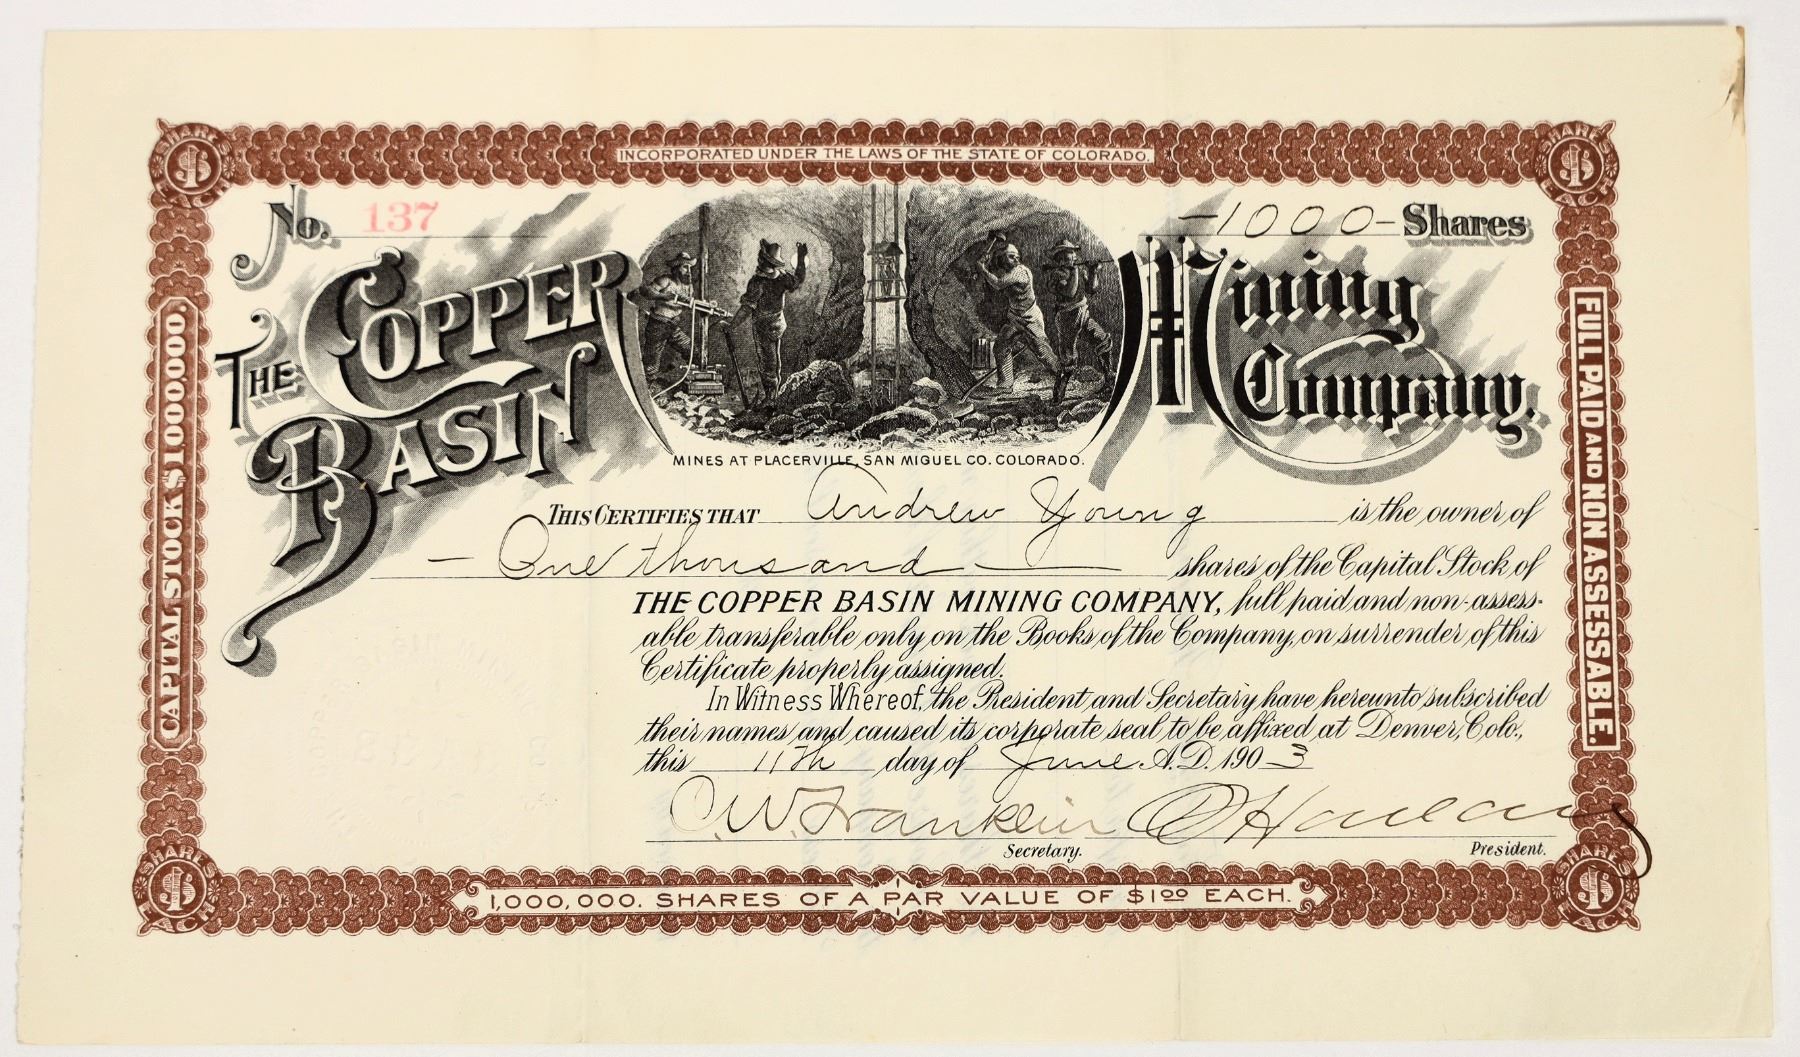 INCORPORATED UNDER THE LAWS OF THE STATE OF COLORADO.
SHARES $1 EACH
SHARES $1 EACH
No. 137
-1000- Shares
THE COPPER BASIN
Mining Company.
MINES AT PLACERVILLE, SAN MIGUEL CO. COLORADO.
CAPITAL STOCK $1000,000.
FULL PAID AND NON ASSESSABLE.
THIS CERTIFIES THAT Andrew Young is the owner of
- One thousand - shares of the Capital Stock of
THE COPPER BASIN MINING COMPANY, full paid and non-assess-
able transferable only on the Books of the Company, on surrender of this
Certificate properly assigned.
In Witness Whereof, the President and Secretary have hereunto subscribed
their names and caused its corporate seal to be affixed at Denver, Colo.,
this 11th day of June A.D. 1903
C. W. Franklin
Secretary. President.
SHARES $1 EACH
SHARES $1 EACH
1,000,000. SHARES OF A PAR VALUE OF $1.00 EACH.